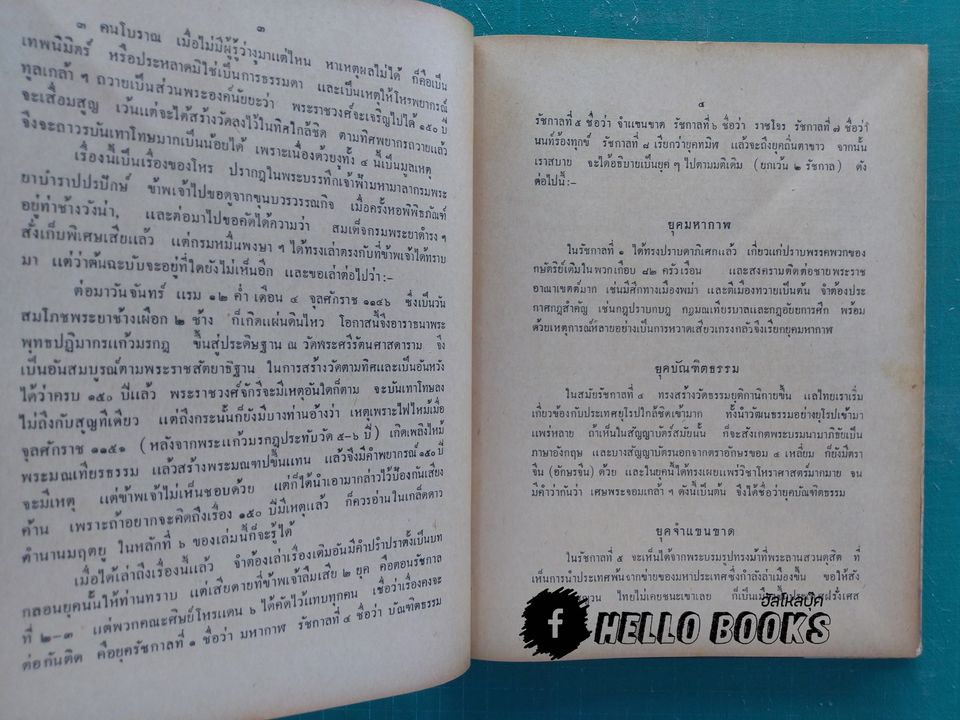 ๓
๓ คนโบราณ เมื่อไม่มีผู้รู้ว่างูมาแต่ไหน หาเหตุผลไม่ได้ ก็คือเป็น
เทพนิมิตร์ หรือประหลาดมิใช่เป็นการธรรมดา และเป็นเหตุให้โหรพยากรณ์
ทูลเกล้า ฯ ถวายเป็นส่วนพระองค์นัยยะว่า พระราชวงศ์จะเจริญไปได้ ๑๕๐ ปี
จะเสื่อมสูญ เว้นแต่จะได้สร้างวัดลงไว้ในทิศใกล้ชิด ตามทิศพยากรถวายแล้ว
จึงจะถาวรบันเทาโทษมากเป็นน้อยได้ เพราะเนื่องด้วยงูทั้ง ๔ นี้เป็นมูลเหตุ
เรื่องนี้เป็นเรื่องของโหร ปรากฏในพระบรรทึกเจ้าฟ้ามหามาลากรมพระ
ยาบำราปปรปักษ์ ข้าพเจ้าไปขอดูจากขุนบวรวรรณกิจ เมื่อครั้งหอพิพิธภัณฑ์
อยู่ท่าช้างวังน่า, และต่อมาไปขอคัดได้ความว่า สมเด็จกรมพระยาดำรง ฯ
สั่งเก็บพิเศษเสียแล้ว แต่กรมหมื่นพงษา ฯ ได้ทรงเล่าตรงกับที่ข้าพเจ้าได้ทราบ
มา แต่ว่าต้นฉะบับจะอยู่ที่ใดยังไม่เห็นอีก และขอเล่าต่อไปว่า:-
ต่อมาวันจันทร์ แรม ๑๒ ค่ำ เดือน ๔ จุลศักราช ๑๑๔๖ ซึ่งเป็นวัน
สมโภชพระยาช้างเผือก ๒ ช้าง ก็เกิดแผ่นดินไหว โอกาสนี้จึงอาราธนาพระ
พุทธปฏิมากรแก้วมรกฎ ขึ้นสู่ประดิษฐาน ณ วัดพระศรีรัตนศาสดาราม จึง
เป็นอันสมบูรณ์ตามพระราชสัตยาธิฐาน ในการสร้างวัดตามทิศและเป็นอันหวัง
ได้ว่าครบ ๑๕๐ ปีแล้ว พระราชวงศ์จักรีจะมีเหตุอันใดก็ตาม จะบันเทาโทษลง
ไม่ถึงกับสูญทีเดียว แต่ถึงกระนั้นก็ยังมีบางท่านอ้างว่า เหตุเพราะไฟไหม้เมื่อ
จุลศักราช ๑๑๕๑ (หลังจากพระแก้วมรกฎประทับวัด ๕-๖ ปี) เกิดเพลิงไหม้
พระมณเฑียรธรรม แล้วสร้างพระมณฑปขึ้นแทน แล้วจึงมีคำพยากรณ์ ๑๕๐ ปี
จะมีเหตุ แต่ข้าพเจ้าไม่เห็นชอบด้วย แต่ก็ได้นำเอามากล่าวไว้ป้องกันเสียง
ค้าน เพราะถ้าอยากจะคิดถึงเรื่อง ๑๕๐ ปีมีเหตุแล้ว ก็ควรอ่านในเกล็ดดาว
คำนานมฤตยู ในหลักที่ ๖ ของเล่มนี้ก็จะรู้ได้
เมื่อได้เล่าถึงเรื่องนี้แล้ว จำต้องเล่าเรื่องเดิมอันมีคำปรำปราตั้งเป็นบท
กลอนยุคนั้นให้ท่านทราบ แต่เสียดายที่ข้าพเจ้าลืมเสีย ๒ ยุค คือตอนรัชกาล
ที่ ๒-๓ แต่พวกคณะศิษย์โหรแดน ๖ ได้คัดไว้แทบทุกคน เชื่อว่าเรื่องคงจะ
ต่อกันติด คือยุครัชกาลที่ ๑ ชื่อว่า มหากาฬ รัชกาลที่ ๔ ชื่อว่า บัณฑิตธรรม
๔
รัชกาลที่ ๕ ชื่อว่า จำแขนขาด รัชกาลที่ ๖ ชื่อว่า ราชโจร รัชกาลที่ ๗ ชื่อว่า
นนท์ร้องทุกข์ รัชกาลที่ ๘ เรียกว่ายุคทมิฬ แล้วจะถึงยุคถิ่นตาขาว จากนั้น
เราสบาย จะได้อธิบายเป็นยุค ๆ ไปตามมติเดิม (ยกเว้น ๒ รัชกาล) ดัง
ต่อไปนี้:-
ยุคมหากาฬ
ในรัชกาลที่ ๑ ได้ทรงปราบดาภิเศกแล้ว เกี่ยวแก่ปราบพรรคพวกของ
กษัตริย์เดิมในพวกเกือบ ๘๒ ครัวเรือน และสงครามติดต่อชายพระราช
อาณาเขตต์มาก เช่นมีศึกทางเมืองพม่า และตีเมืองทวายเป็นต้น จำต้องประ
กาศกฎสำคัญ เช่นกฎปราบกบฏ กฎมณเฑียรบาลและกฎอัยยการศึก พร้อม
ด้วยเหตุการณ์หลายอย่างเป็นการหวาดเสียวเกรงกลัวจึงเรียกยุคมหากาฬ
ยุคบัณฑิตธรรม
ในสมัยรัชกาลที่ ๔ ทรงสร้างวัดธรรมยุติกานิกายขึ้น และไทยเราเริ่ม
เกี่ยวข้องกับประเทศยุโรปใกล้ชิดเข้ามาก ทั้งนำวัฒนธรรมอย่างยุโรปเข้ามา
แพร่หลาย ถ้าเห็นในสัญญาบัตร์สมัยนั้น ก็จะสังเกตพระบรมนามาภิธัยเป็น
ภาษาอังกฤษ และบางสัญญาบัตรนอกจากตราอักษรขอม ๔ เหลี่ยม ก็ยังมีตรา
จีน (อักษรจีน) ด้วย และในยุคนี้ได้ทรงเผยแผ่วิชาโหราศาสตร์มากมาย จน
มีคำว่ากันว่า เศษพระจอมเกล้า ฯ ดังนี้เป็นต้น จึงได้ชื่อว่ายุคบัณฑิตธรรม
ยุคจำแขนขาด
ในรัชกาลที่ ๕ จะเห็นได้จากพระบรมรูปทรงม้าที่พระลานสวนดุสิต ที่
เห็นการนำประเทศพ้นจากข่ายของมหาประเทศซึ่งกำลังล่าเมืองขึ้น ขอให้สัง
ไทยไม่เคยชนะเขาเลย ก็เป็นเมือง
ฝรั่งเศส
ฮัลโหลบุ๊ค
f HELLO BOOKS